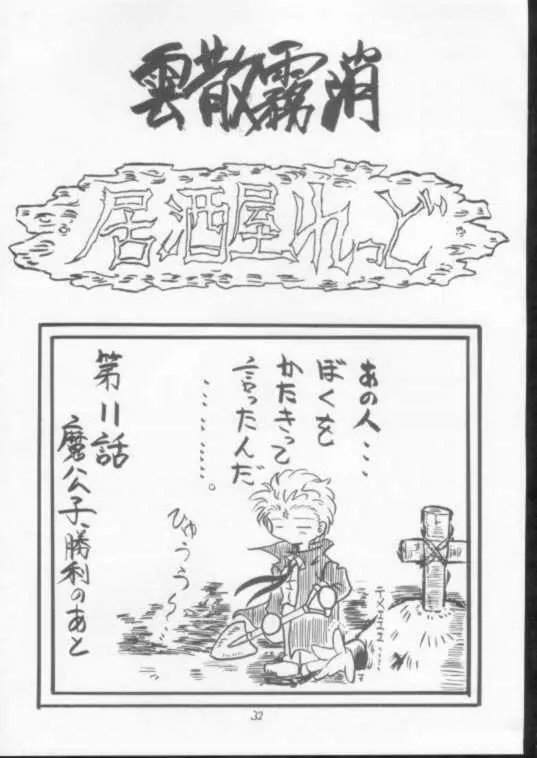 雲散霧消
居酒屋れっど
あの人・・・
ぼくを
かたきって
言ったんだ
・・・・・・・・・。
ひゅうう〜・・・
テメェェェ・・・・
第11話
魔公子、勝利のあと
32